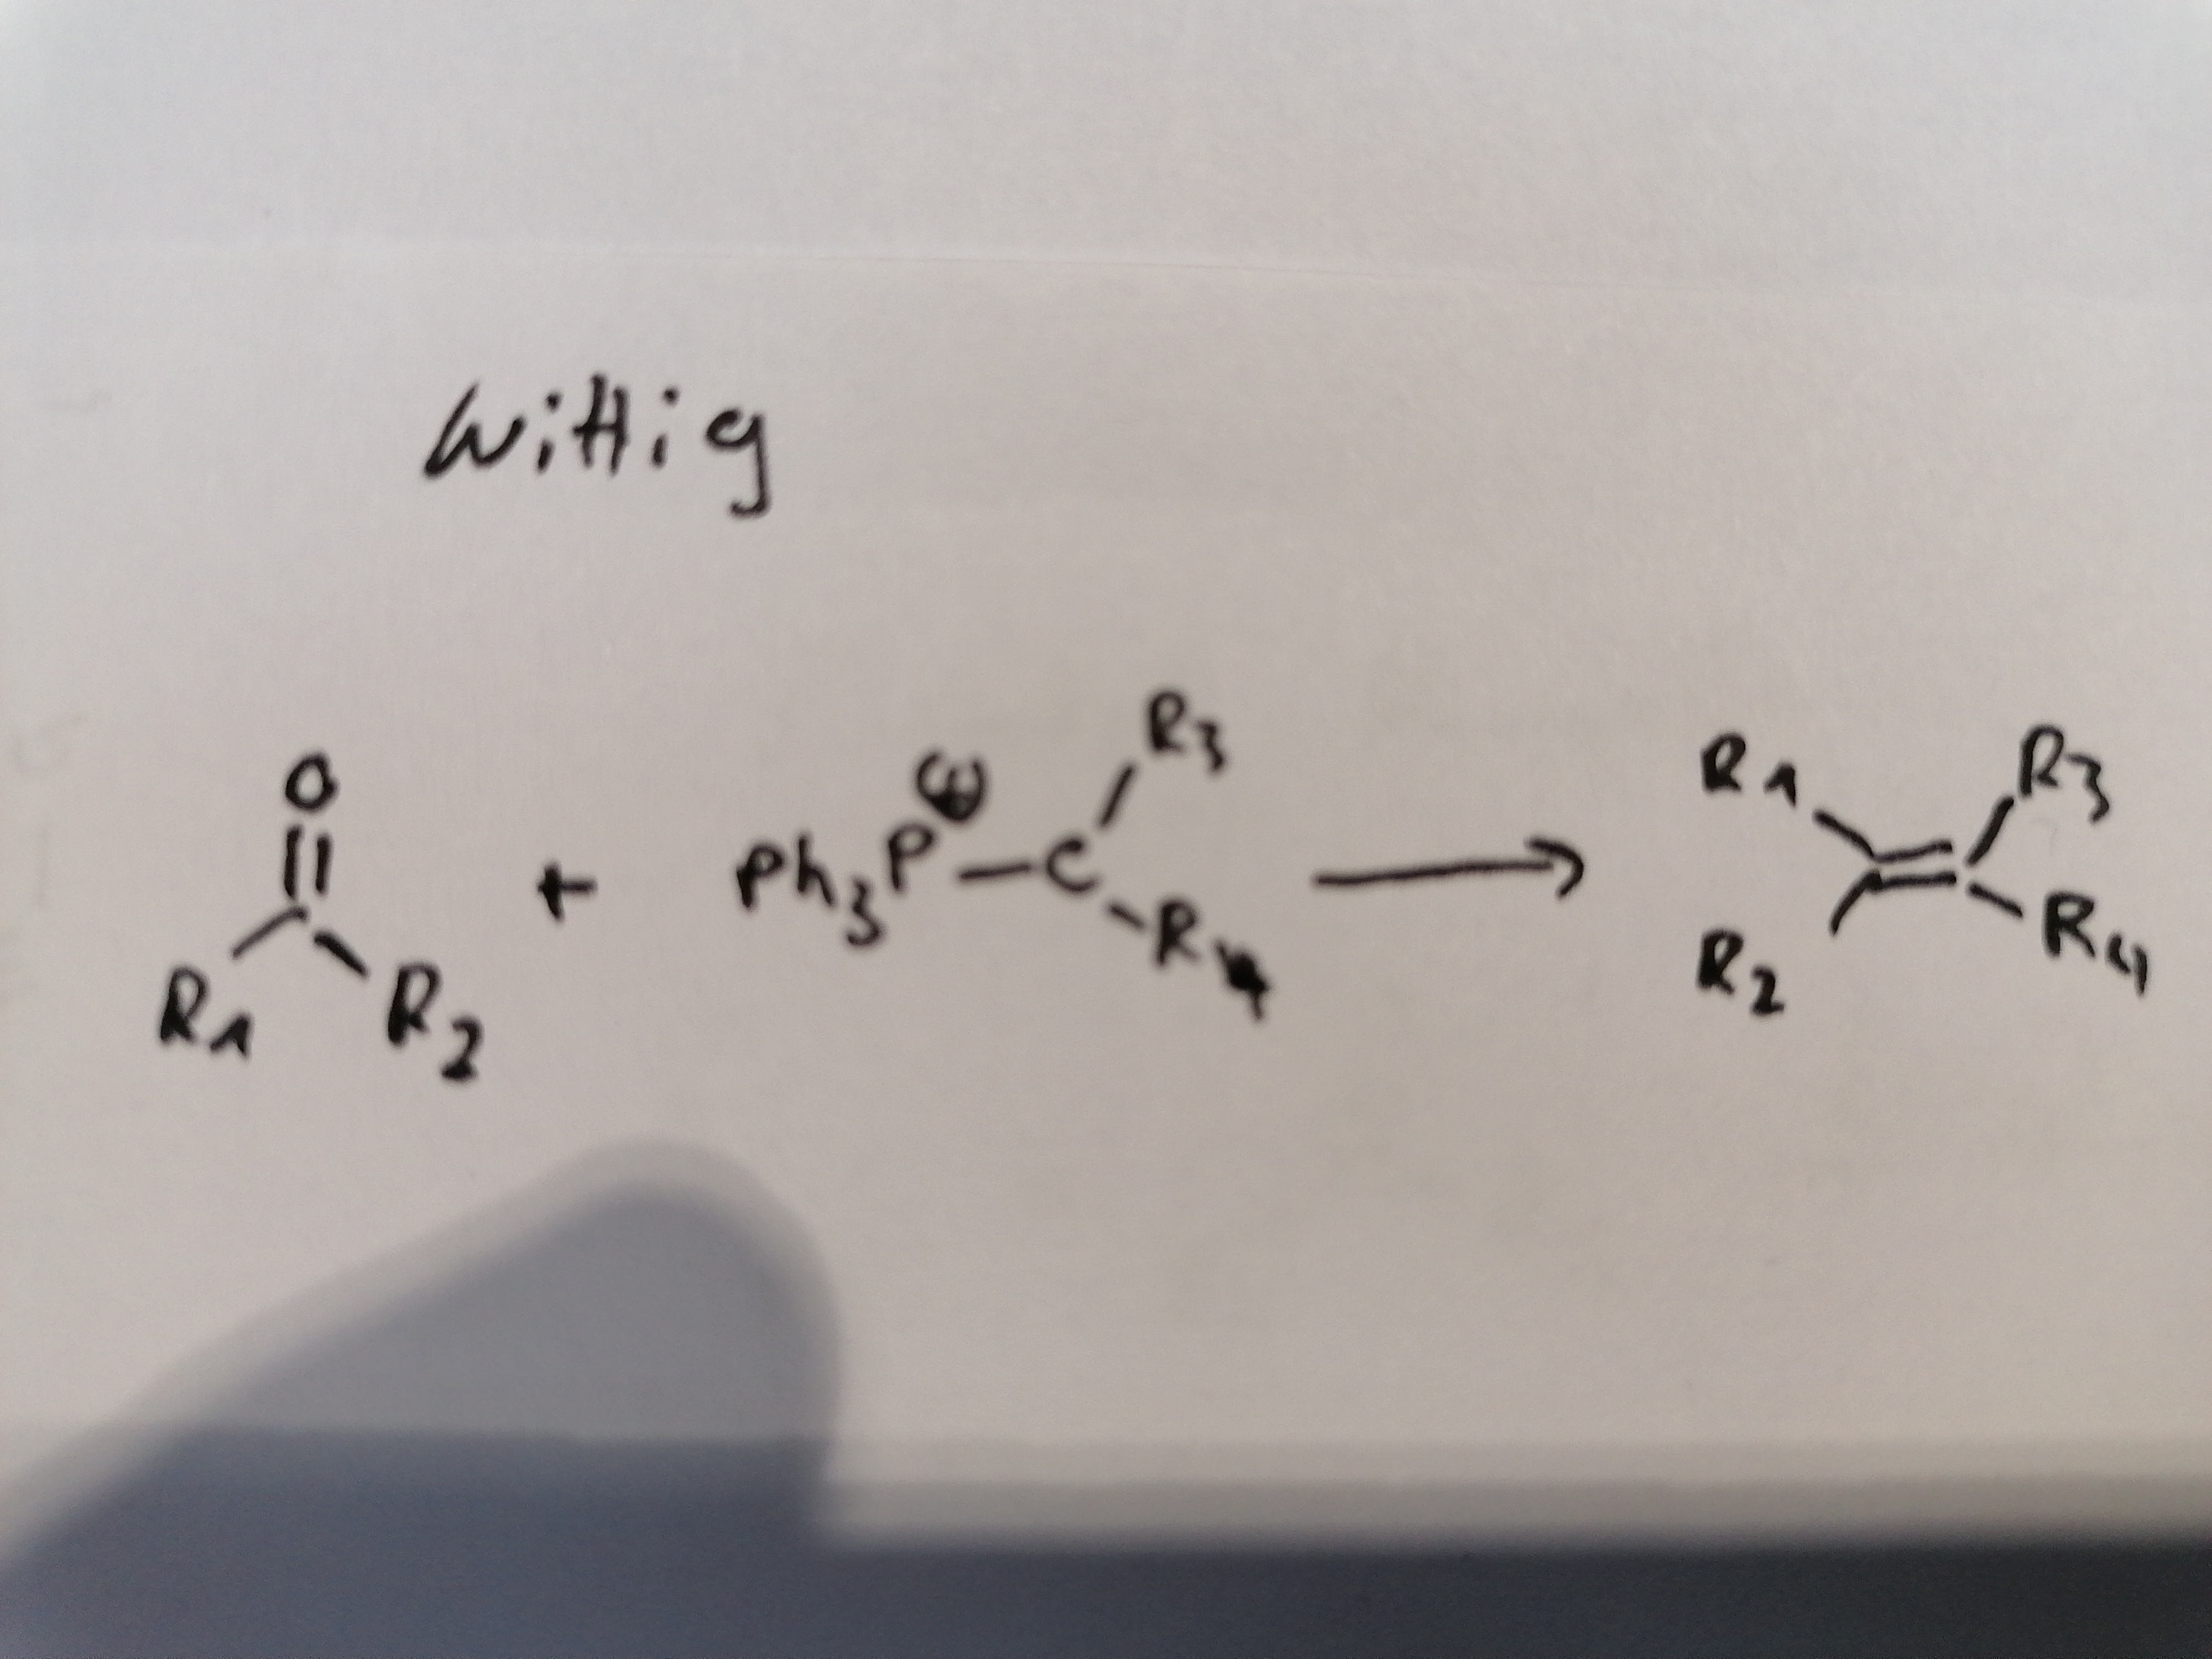 Wittig
O
R1 R2 + Ph3P ⊕ — C R3 R4 → R1 R2 = R3 R4